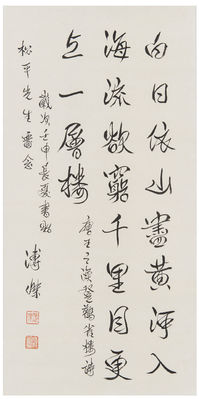 白日依山盡黄河入
海流欲窮千里目更
上一層樓
唐王之渙登鸛雀樓詩
歲次壬申長夏書贈
松平先生留念
溥傑